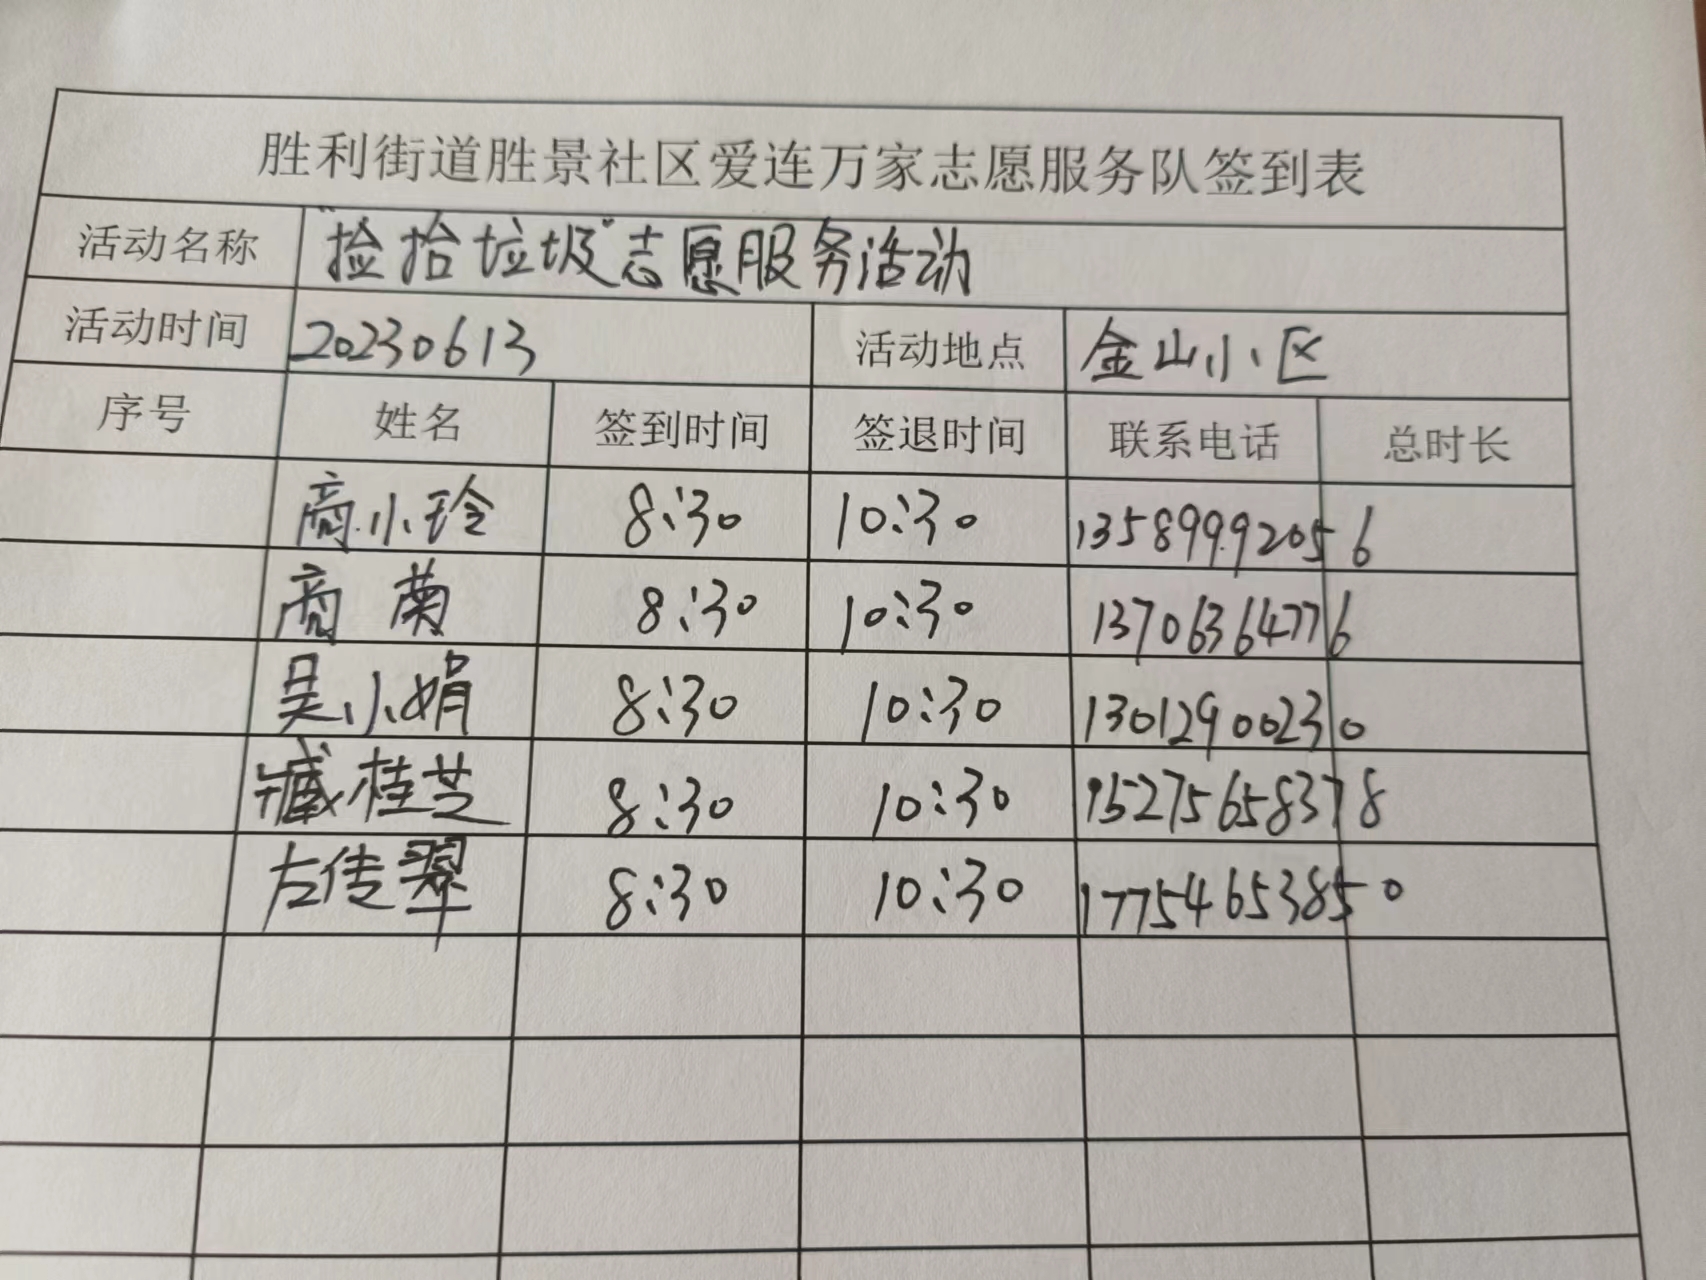 胜利街道胜景社区爱连万家志愿服务队签到表
活动名称 "捡拾垃圾"志愿服务活动
活动时间 20230613 活动地点 金山小区
序号 姓名 签到时间 签退时间 联系电话 总时长
商小玲 8:30 10:30 13589992056
商菊 8:30 10:30 13706364776
吴小娟 8:30 10:30 13012900230
臧桂芝 8:30 10:30 15275658378
左传翠 8:30 10:30 17754653850